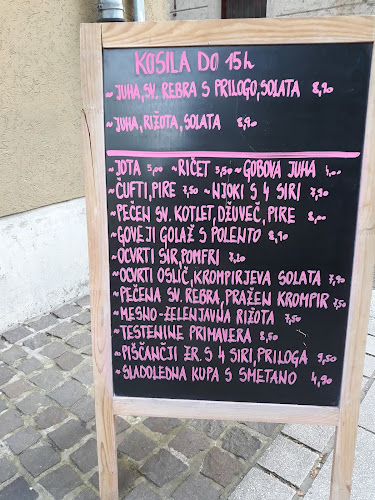 KOSILA DO 15h
~JUHA, SV. REBRA S PRILOGO, SOLATA 8,90
~JUHA, RIŽOTA, SOLATA 8,90
~JOTA 5,00 ~RIČET 5,50 ~GOBOVA JUHA
~ČUFTI, PIRE 7,50 ~NJOKI S 4 SIRI 7,90
~PEČEN SV. KOTLET, DŽUVEČ, PIRE 8,00
~GOVEJI GOLAŽ S POLENTO 8,90
~OCVRTI SIR, POMFRI 7,20
~OCVRTI OSLIČ, KROMPIRJEVA SOLATA 7,90
~PEČENA SV. REBRA, PRAŽEN KROMPIR 7,50
~MESNO-ZELENJAVNA RIŽOTA 7,50
~TESTENINE PRIMAVERA 8,50
~PIŠČANČJI ZR. S 4 SIRI, PRILOGA 9,50
~SLADOLEDNA KUPA S SMETANO 4,90